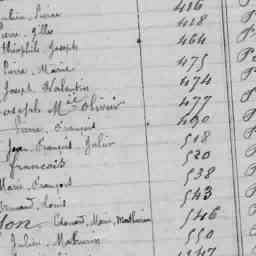 Pierre 416
Pierre, Gilles 418
Théophile, Joseph 464
Pierre, Marie 475
Joseph, Valentin 474
Joseph, Mie Olivier 477
Pierre, François 490
Jean, François, Julien 518
François 520
Marie, François 538
Armand, Louis 543
Edouard, Marie, Mathurin 546
Julien, Mathurin 550